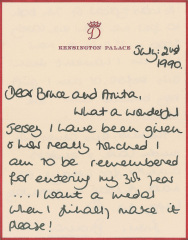 D
KENSINGTON PALACE
July: 2nd
1990.
Dear Bruce and Anita,
What a wonderful
jersey I have been given
& was really touched I
am to be remembered
for entering my 30th year
... I want a medal
when I finally make it
please!